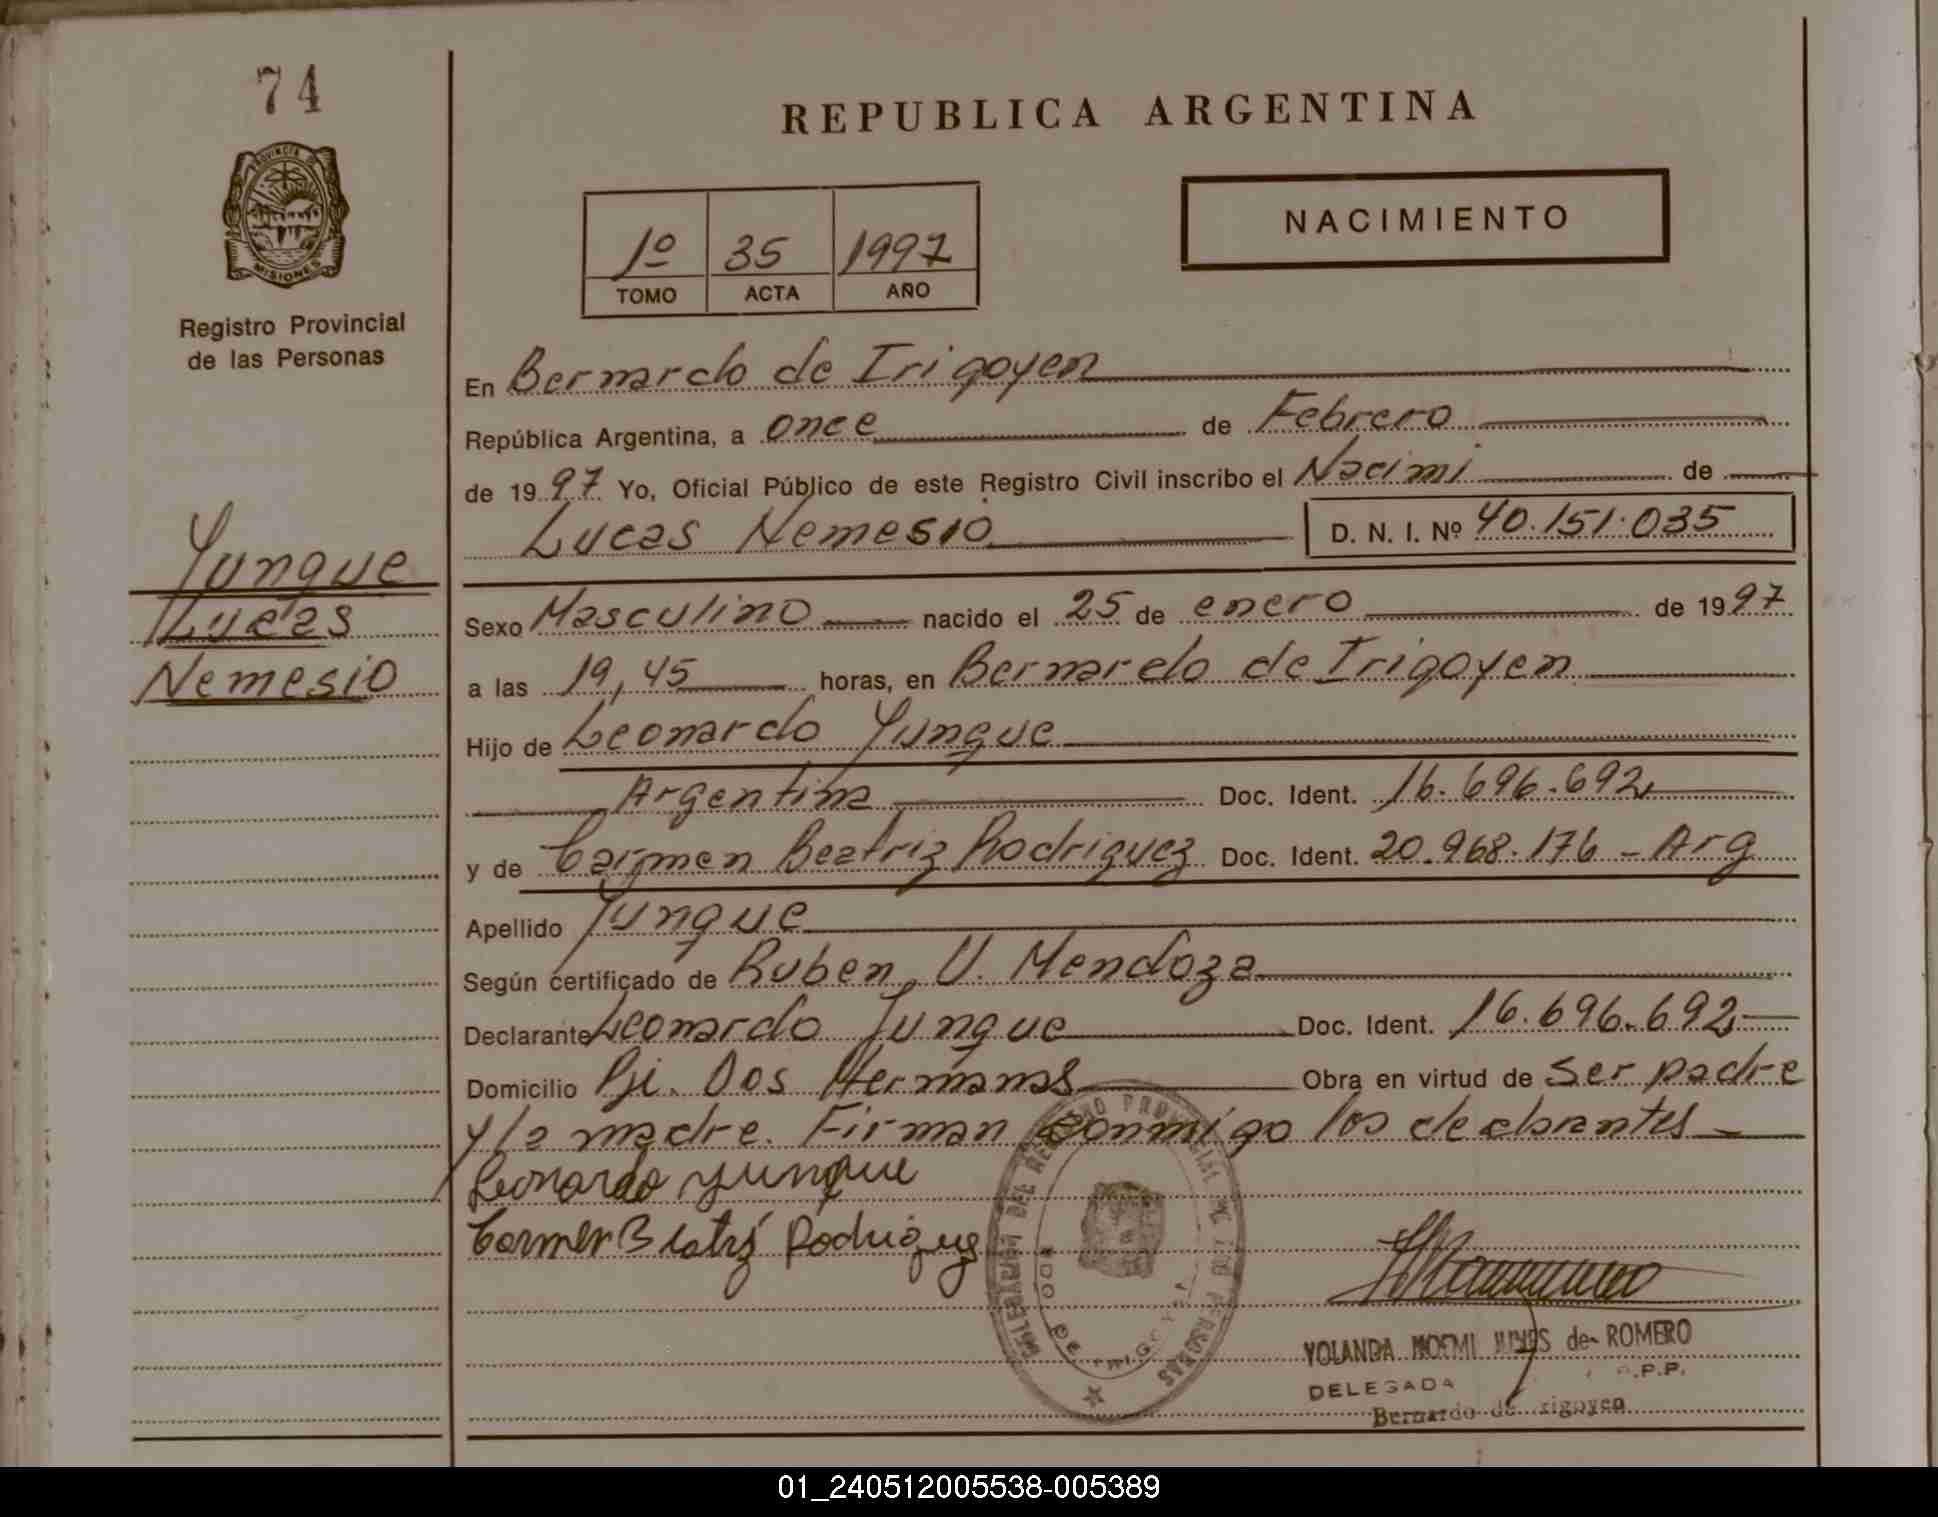 74
REPUBLICA ARGENTINA
PROVINCIA DE
MISIONES
Registro Provincial
de las Personas
1º 35 1997
TOMO ACTA AÑO
NACIMIENTO
En Bernardo de Irigoyen
República Argentina, a once de Febrero
de 1997 Yo, Oficial Público de este Registro Civil inscribo el Nacimi de
Lucas Nemesio D. N. I. Nº 40.151.035
Yunque
Lucas
Nemesio
Sexo Masculino nacido el 25 de enero de 1997
a las 19,45 horas, en Bernardo de Irigoyen
Hijo de Leonardo Yunque
Argentina Doc. Ident. 16.696.692
y de Carmen Beatriz Rodriguez Doc. Ident. 20.968.176 - Arg
Apellido Yunque
Según certificado de Ruben U. Mendoza
Declarante Leonardo Yunque Doc. Ident. 16.696.692
Domicilio Pje. Dos Hermanas Obra en virtud de ser padre
y la madre. Firman conmigo los declarantes
Leonardo yunque
Carmen Beatriz Rodriguez
DELEGACION DEL REGISTRO PROVINCIAL DE LAS PERSONAS
BDO. DE IRIGOYEN
YOLANDA NOEMI de ROMERO
DELEGADA P.P.
Bernardo de Irigoyen
01_240512005538-005389